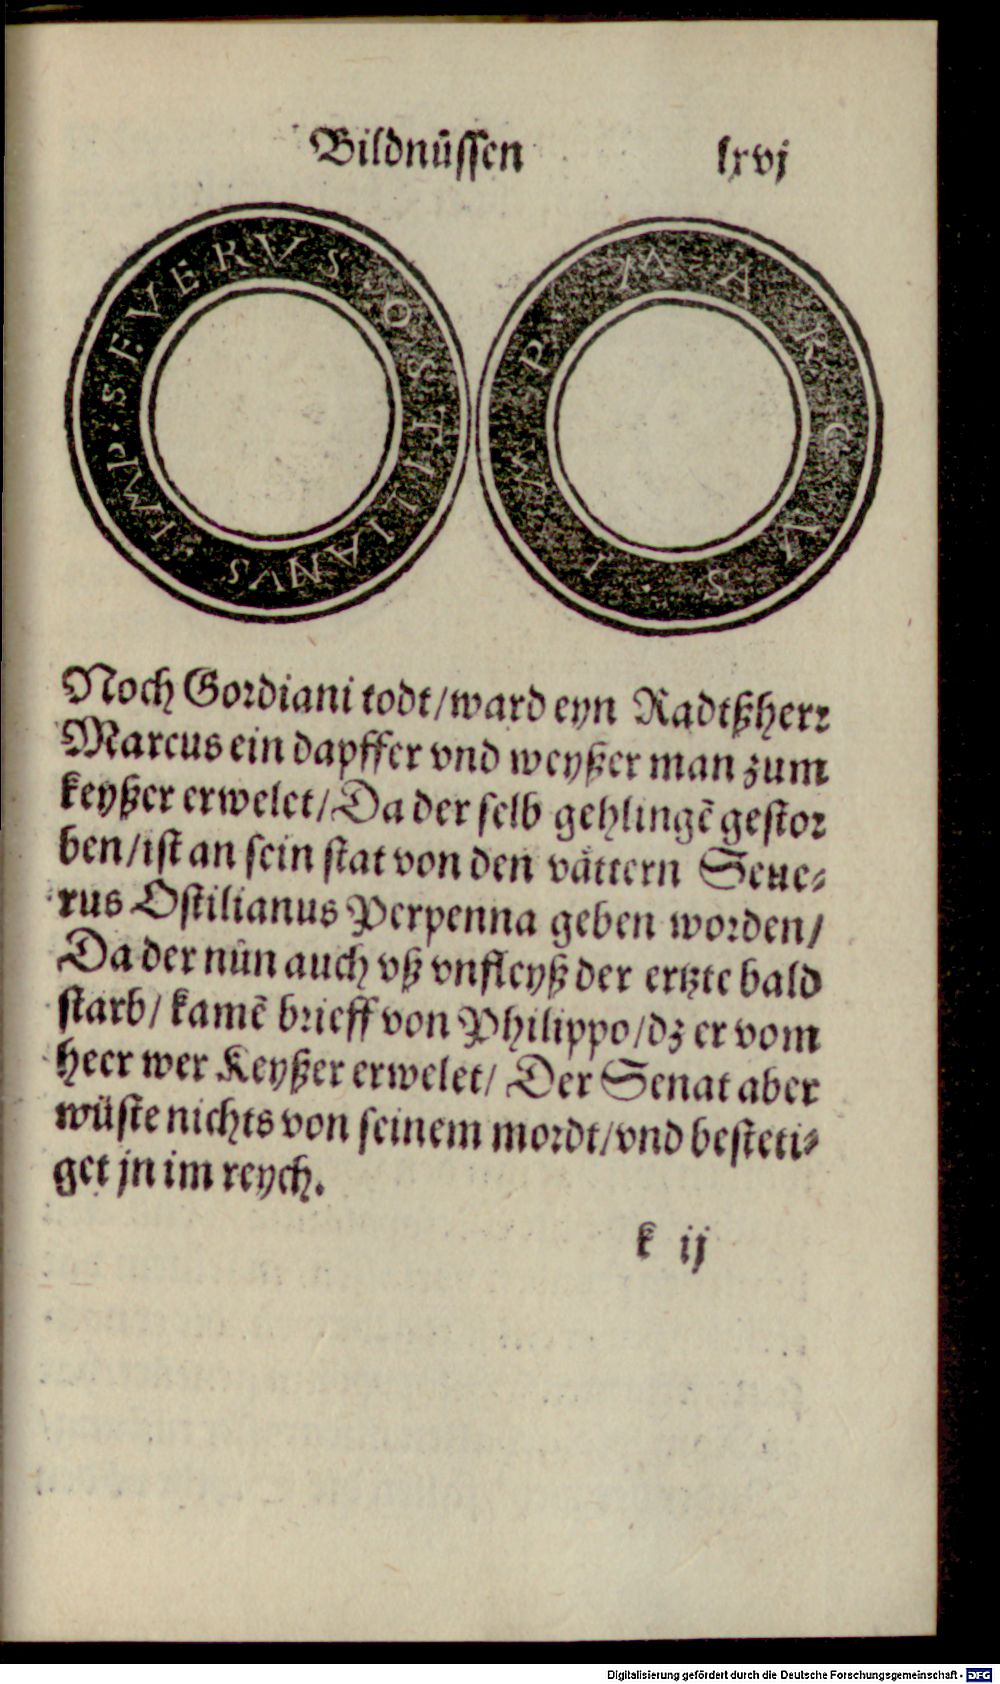 Bildnüssen lxvj
IMP · SEVERVS · OSTILIANVS
IMP · MARCVS ·
Noch Gordiani todt/ward eyn Radtßherr
Marcus ein dapffer vnd weyßer man zum
keyßer erwelet/Da der selb gehlingẽ gestor
ben/ist an sein stat von den vättern Seue⸗
rus Ostilianus Perpenna geben worden/
Da der nün auch vß vnfleyß der ertzte bald
starb/ kamẽ brieff von Philippo/dz er vom
heer wer Keyßer erwelet/ Der Senat aber
wüste nichts von seinem mordt/vnd besteti⸗
get jn im reych.
k ij
Digitalisierung gefördert durch die Deutsche Forschungsgemeinschaft - DFG